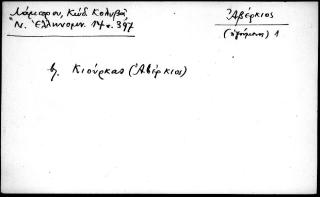 Λάμπρου, Κώδ. Κολυβᾶ,
"Ν. Ἑλληνομν. 14ος 397
Ἀβέρκιος
(ἡγούμενος) 1
β. Κιούρκας (Ἀβέρκιος)